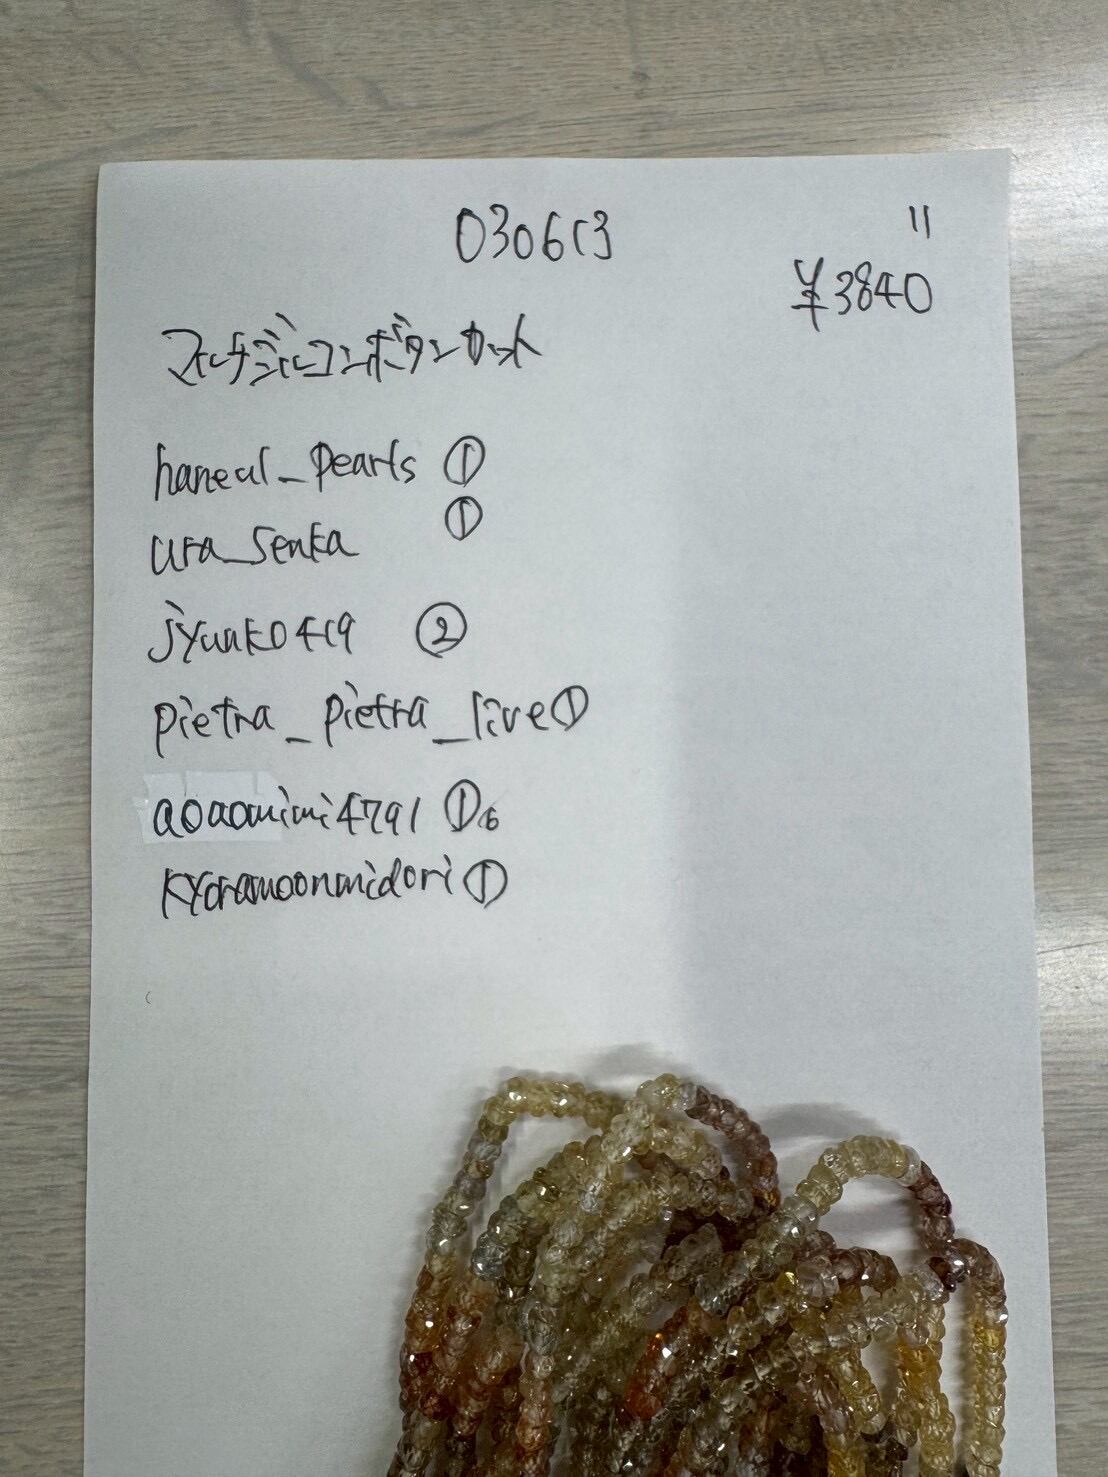 030613
11
¥3840
マルチジルコンボタンカット
haneul_pearls ①
ura_senka ①
jyunko419 ②
pietra_pietra_live①
aoaomimi4791 ①6
kyoramoonmidori①